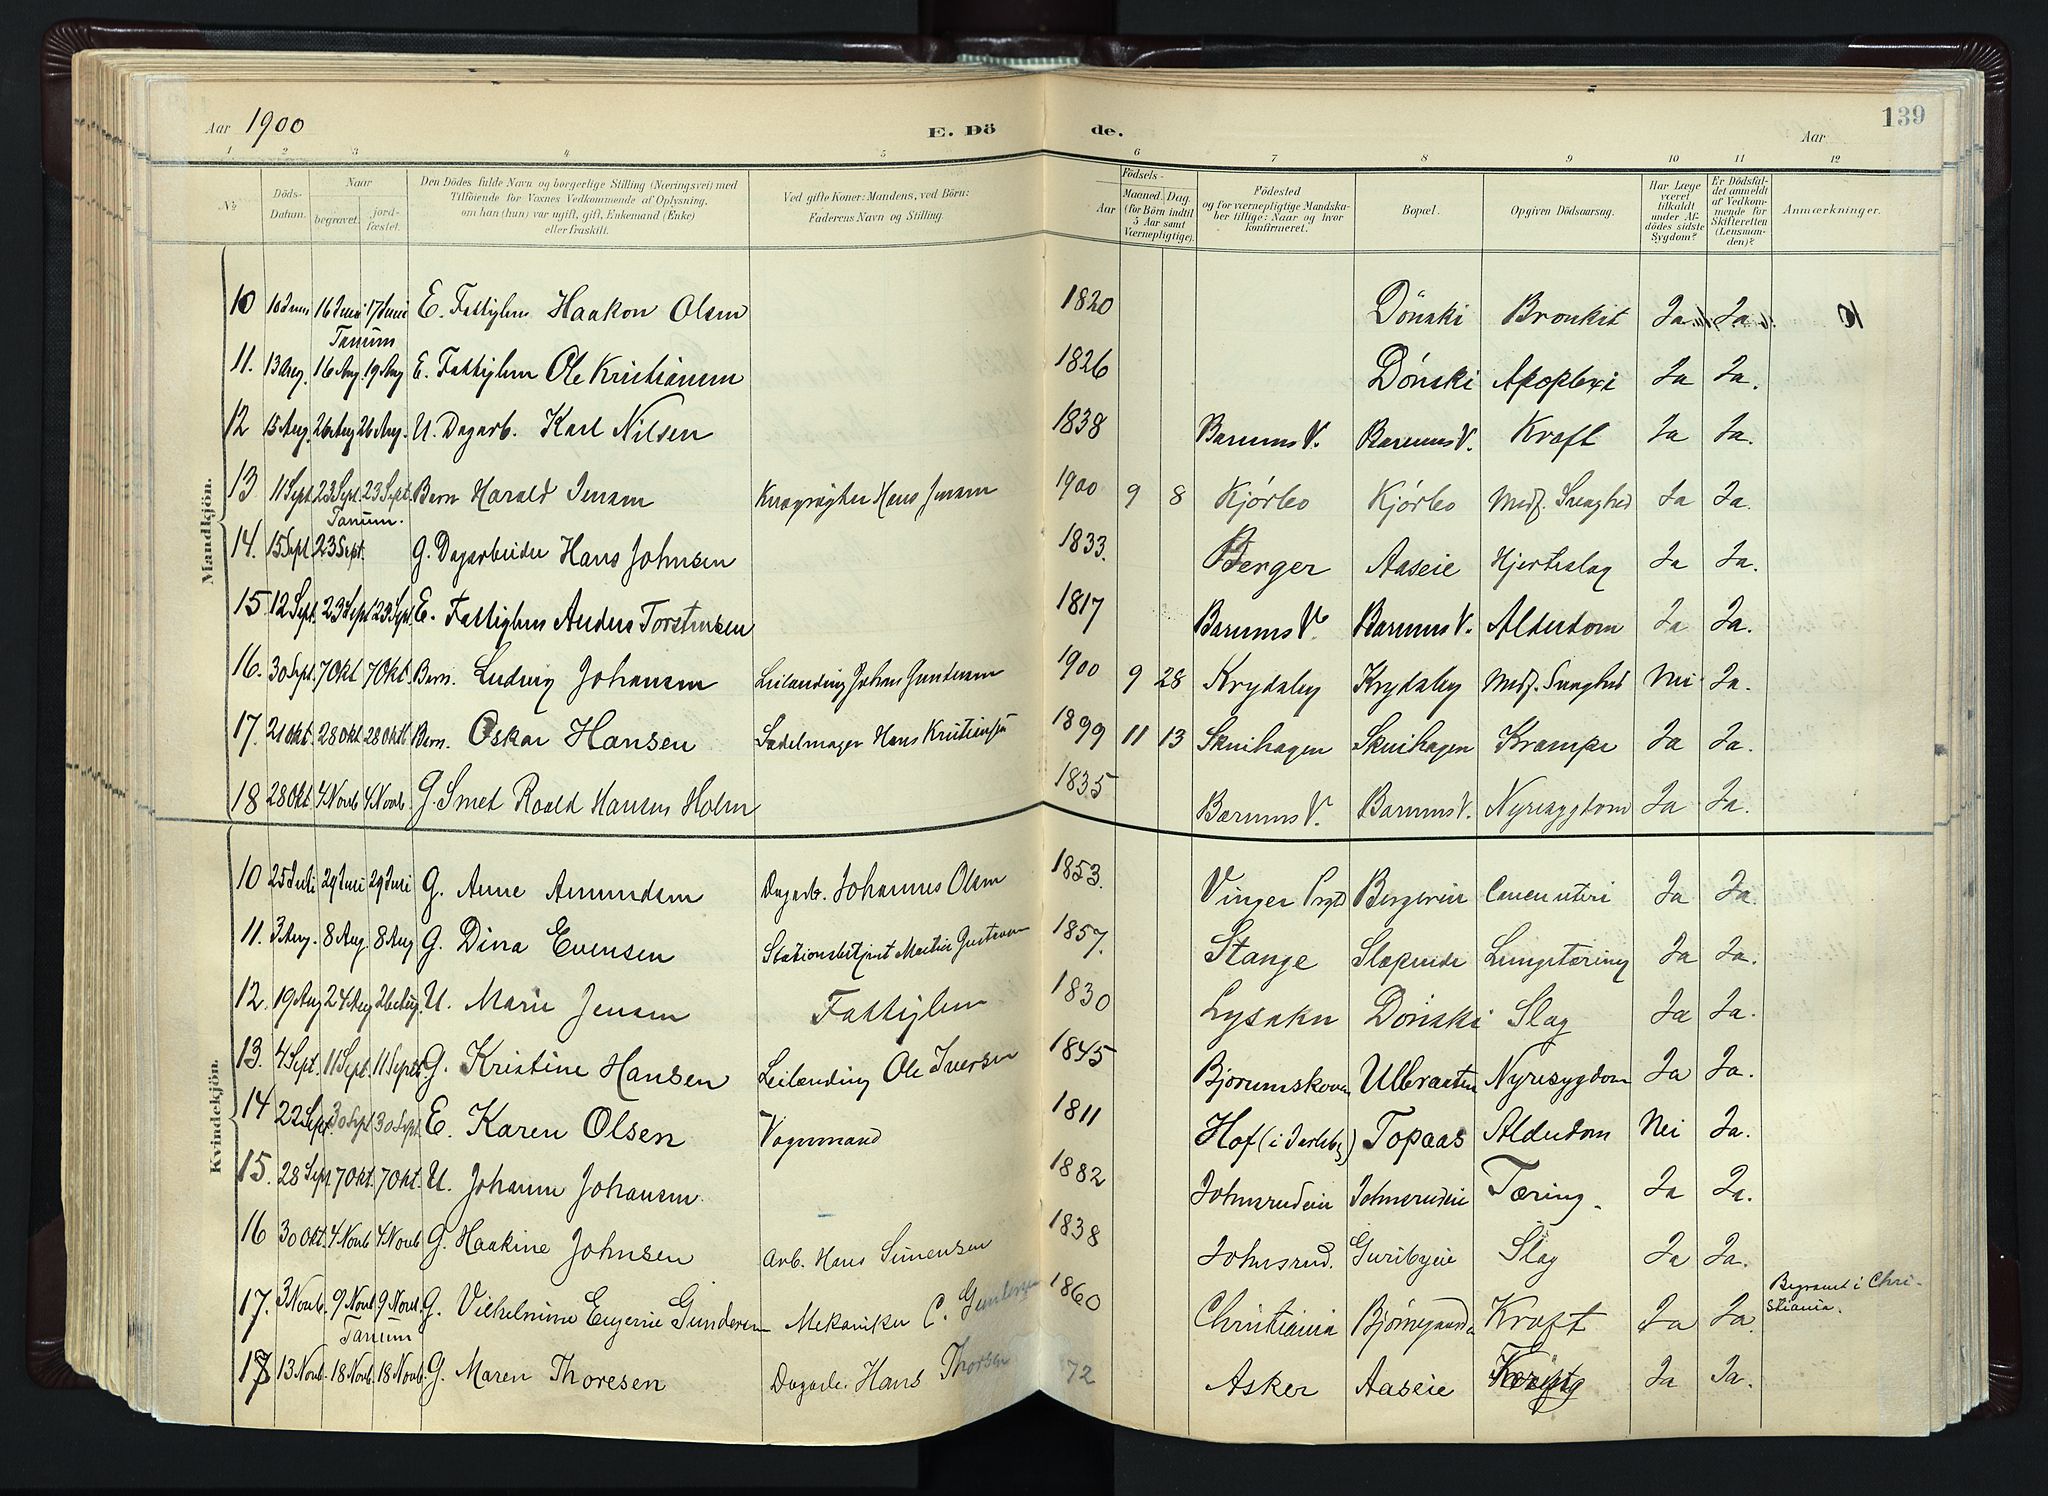 Aar 1900 E. Dö de. Aar 139
1 2 3 4 5 6 7 8 9 10 11 12
№
Döds-Datum.
Naar begravet. jordfæstet.
Den Dödes fulde Navn og borgerlige Stilling (Næringsvei) med
Tilföiende for Voxnes Vedkommende af Oplysning,
om han (hun) var ugift, gift, Enkemand (Enke)
eller fraskilt.
Ved gifte Koner: Mandens, ved Börn:
Faderens Navn og Stilling.
Födsels-
Aar Maaned. Dag.
(for Börn indtil
5 Aar samt
Værnepligtige).
Födested
og for værnepligtige Mandska-
ber tillige: Naar og hvor
konfirmeret.
Bopæl.
Opgiven Dödsaarsag.
Har Læge
været
tilkaldt
under Af-
dödes sidste
Sygdom?
Er Dödsfal-
det anmeldt
af Vedkom-
mende for
Skifteretten
(Lensman-
den)?
Anmærkninger.
Mandkjön.
10 10 Juni 16 Juni 17 Juni E. Fattiglem Haakon Olsen 1820 Dönski Bronkit Ja Ja
Tanum
11. 13 Aug. 16 Aug 19 Aug E. Fattiglem Ole Kristiansen 1826 Dönski Apoplexi Ja Ja.
12 15 Aug. 26 Aug 26 Aug. U. Dagarb. Karl Nilsen 1838 Bærums V. Bærums V. Kræft Ja Ja.
13 11 Sept 23 Sept. 23 Sept. Barn Harald Jensen Hans Jensen 1900 9 8 Kjörbo Kjörbo Medf. Svaghed Ja Ja.
Tanum.
14. 15 Sept 23 Sept. G. Dagarbeider Hans Johnsen 1833. Berger Aaseie Hjerteslag Ja Ja.
15 12 Sept. 23 Sept 23 Sept. E. Fattiglem Anders Torstensen 1817 Bærums V. Bærums V. Alderdom Ja Ja.
16. 30 Sept. 7 Okt 7 Okt. Barn. Ludvig Johansen Leilænding Johans Gundersen 1900 9 28 Krydsby Krydsby Medf. Svaghed Nei Ja.
17. 21 Okt. 28 Okt 28 Okt. Barn. Oskar Hansen Sadelmager Hans 1899 11 13 Skuihagen Skuihagen Krampe Ja Ja.
18 28 Okt. 4 Novb 4 Novb. G. Smed Roald Hansen Holm 1835 Bærums V. Bærums V. Nyresygdom Ja Ja.
Kvindekjön.
10 25 Juli 29 Juni 29 Juni G. Anne Amundsen Dagarb. Johannes Olsen 1853. Vinger Prgd Bergereie Cancer uteri Ja Ja.
11. 3 Aug. 8 Aug. 8 Aug G. Dina Evensen Stationsbetjent Martin Gustavsen 1857. Stange Slæpende Lungetæring Ja Ja.
12. 19 Aug 24 Aug 26 Aug. U. Marie Jensen Fattiglem 1830 Lysaker Dönski Slag Ja Ja.
13. 4 Sept. 11 Sept. 11 Sept. G. Kristine Hansen Leilænding Ole Iversen 1845 Bjerumskoven Ulbraaten Nyresygdom Ja Ja.
14 22 Sept. 30 Sept 30 Sept. E. Karen Olsen Vognmand 1811 Hof (i Jarlsbg) Topaas Alderdom Nei Ja.
15. 28 Sept 7 Okt. 7 Okt. U. Johanne Johansen. 1882 Johnsrudeie Johnsrudeie Tæring. Ja Ja.
16 30 Okt. 4 Novb 4 Novb G. Haakine Johnsen Arb. Hans Simensen 1838 Johnsrud. Guribyeie Slag Ja Ja.
17. 3 Novb. 9 Novb. 9 Novb. G. Vilhelmine Eugenie Gundersen Mekaniker C. Gundersen 1860 Christiania Bjørnegaard Kræft Ja Ja. Begravet i Chri-
stiania.
Tanum
18 13 Novb. 18 Novb. 18 Novb. G. Maren Thoresen Dagarb. Hans Thorsen 72 Asker Aaseie Ja Ja.